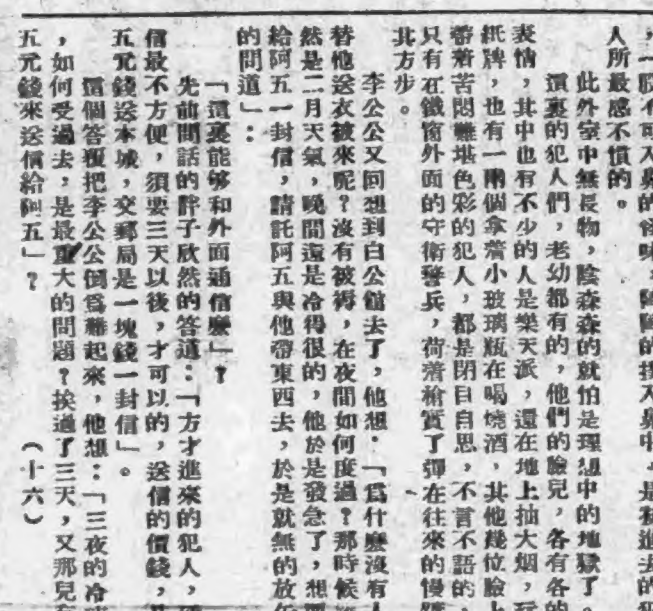 ，一股有可入鼻的怪味，陣陣的撲入鼻中，是初進去的犯
人所最感不慣的。
此外室中無長物，陰森森的就怕是理想中的地獄了
這裏的犯人們，老幼都有的，他們的臉兒，各有各的
表情，其中也有不少的人是樂天派，還在地上抽大烟，玩
紙牌，也有一兩個拿着小玻璃瓶在喝燒酒，其他幾位臉上
帶着苦悶難堪色彩的犯人，都是閉目自思，不言不語的，
只有在鐵窗外面的守衛警兵，荷着槍實了彈在往來的慢踱
其方步。
李公公又回想到白公館去了，他想：「爲什麼沒有人
替他送衣被來呢？沒有被褥，在夜間如何度過？那時候
然是二月天氣，晚間還是冷得很的，他於是發急了，想要
給阿五一封信，請託阿五與他帶東西去，於是就無的放矢
的問道」：
「這裏能够和外面通信麼」？
先前閒話的胖子欣然的答道：「方才進來的犯人，
信最不方便，須要三天以後，才可以的，送信的價錢，
五元錢送本城，交郵局是一塊錢一封信」。
這個答覆把李公公倒爲難起來，他想：「三夜的冷
，如何受過去，是最重大的問題？挨過了三天，又那兒有
五元錢來送信給阿五」？
（十六）